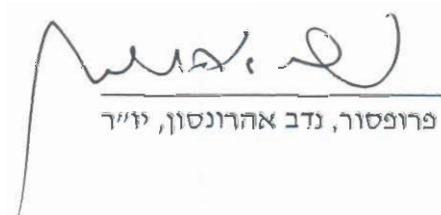 פרופסור, נדב אהרונסון, יו״ר